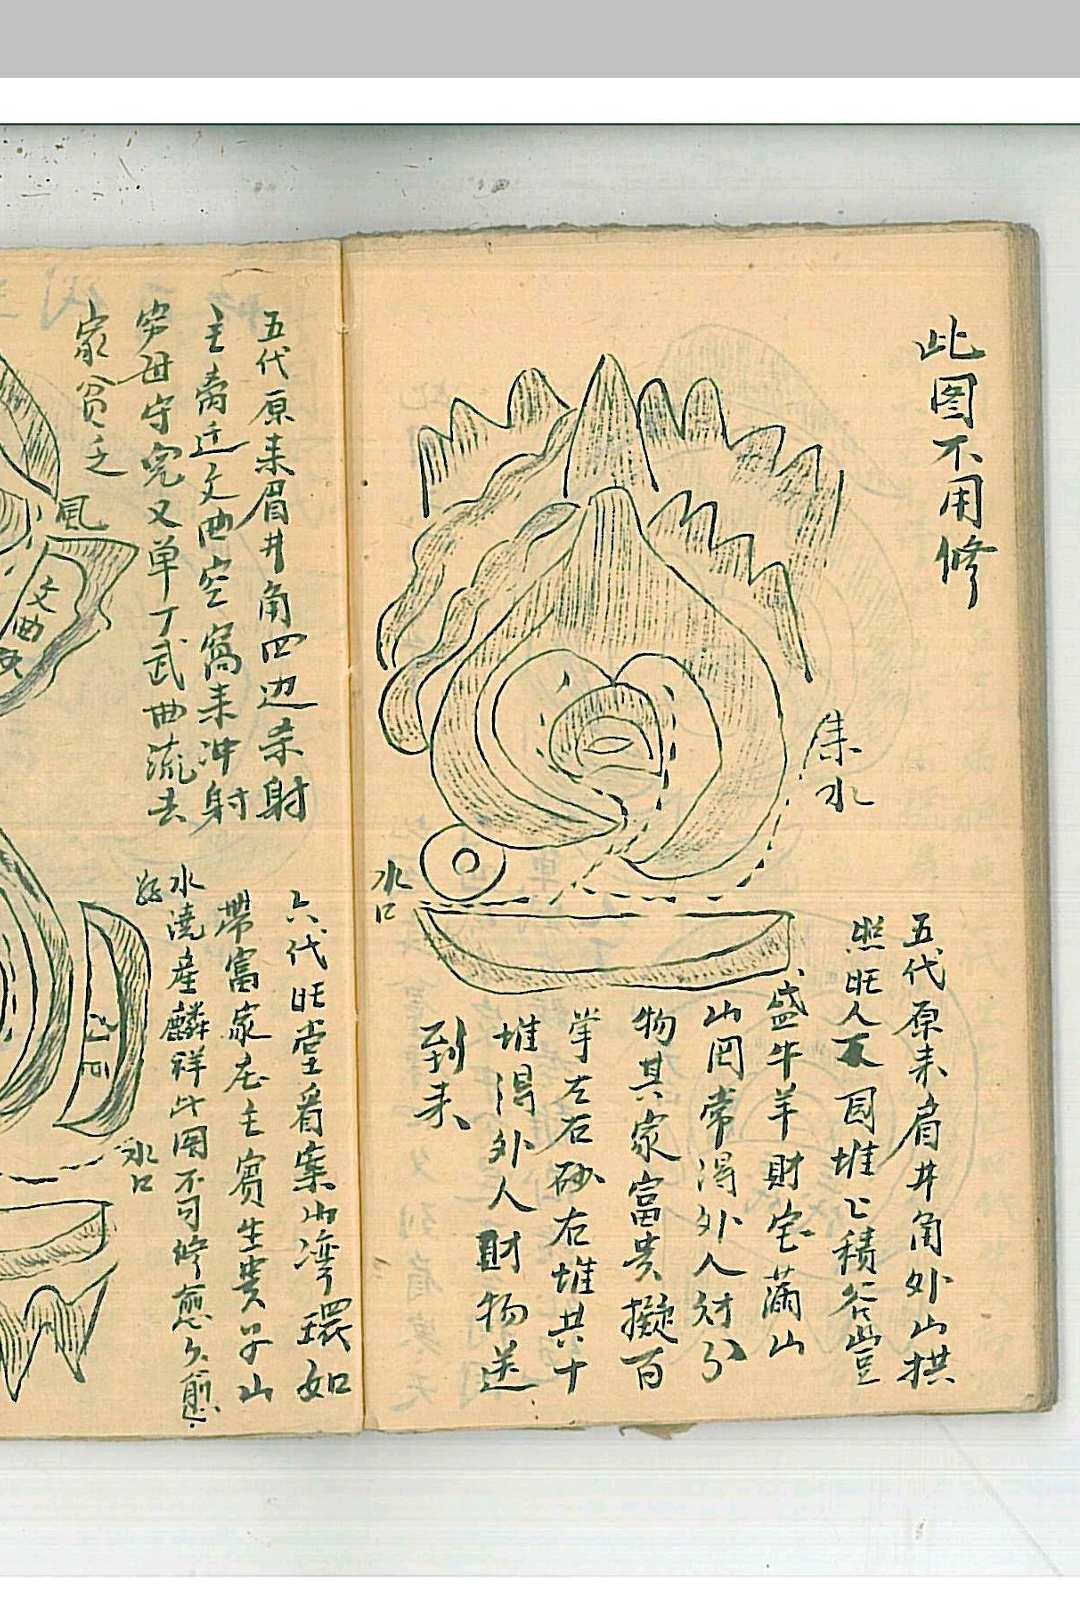 此图不用修
朱水
水口
五代原来眉井角外山拱
照旺人 囙堆乙積谷豊
盛牛羊財宅滿山
山罔常得外人財分
物其家富贵擬百
掌左右砂右堆共十
堆得外人財物送
到来
五代原来眉井角四边杀射
主 迁文曲空窩来冲射
穷母守完又单丁武曲流去
家贫乏
風
文曲
六代旺堂看案山湾環如
帶富家庄主賓生貴子山
水澆產麟祥此图不可修愈久愈
好
水口